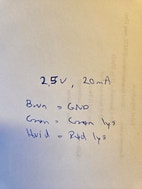 2,5V, 20mA
Brun = GND
Grøn = Grøn lys
Hvid = Rød lys